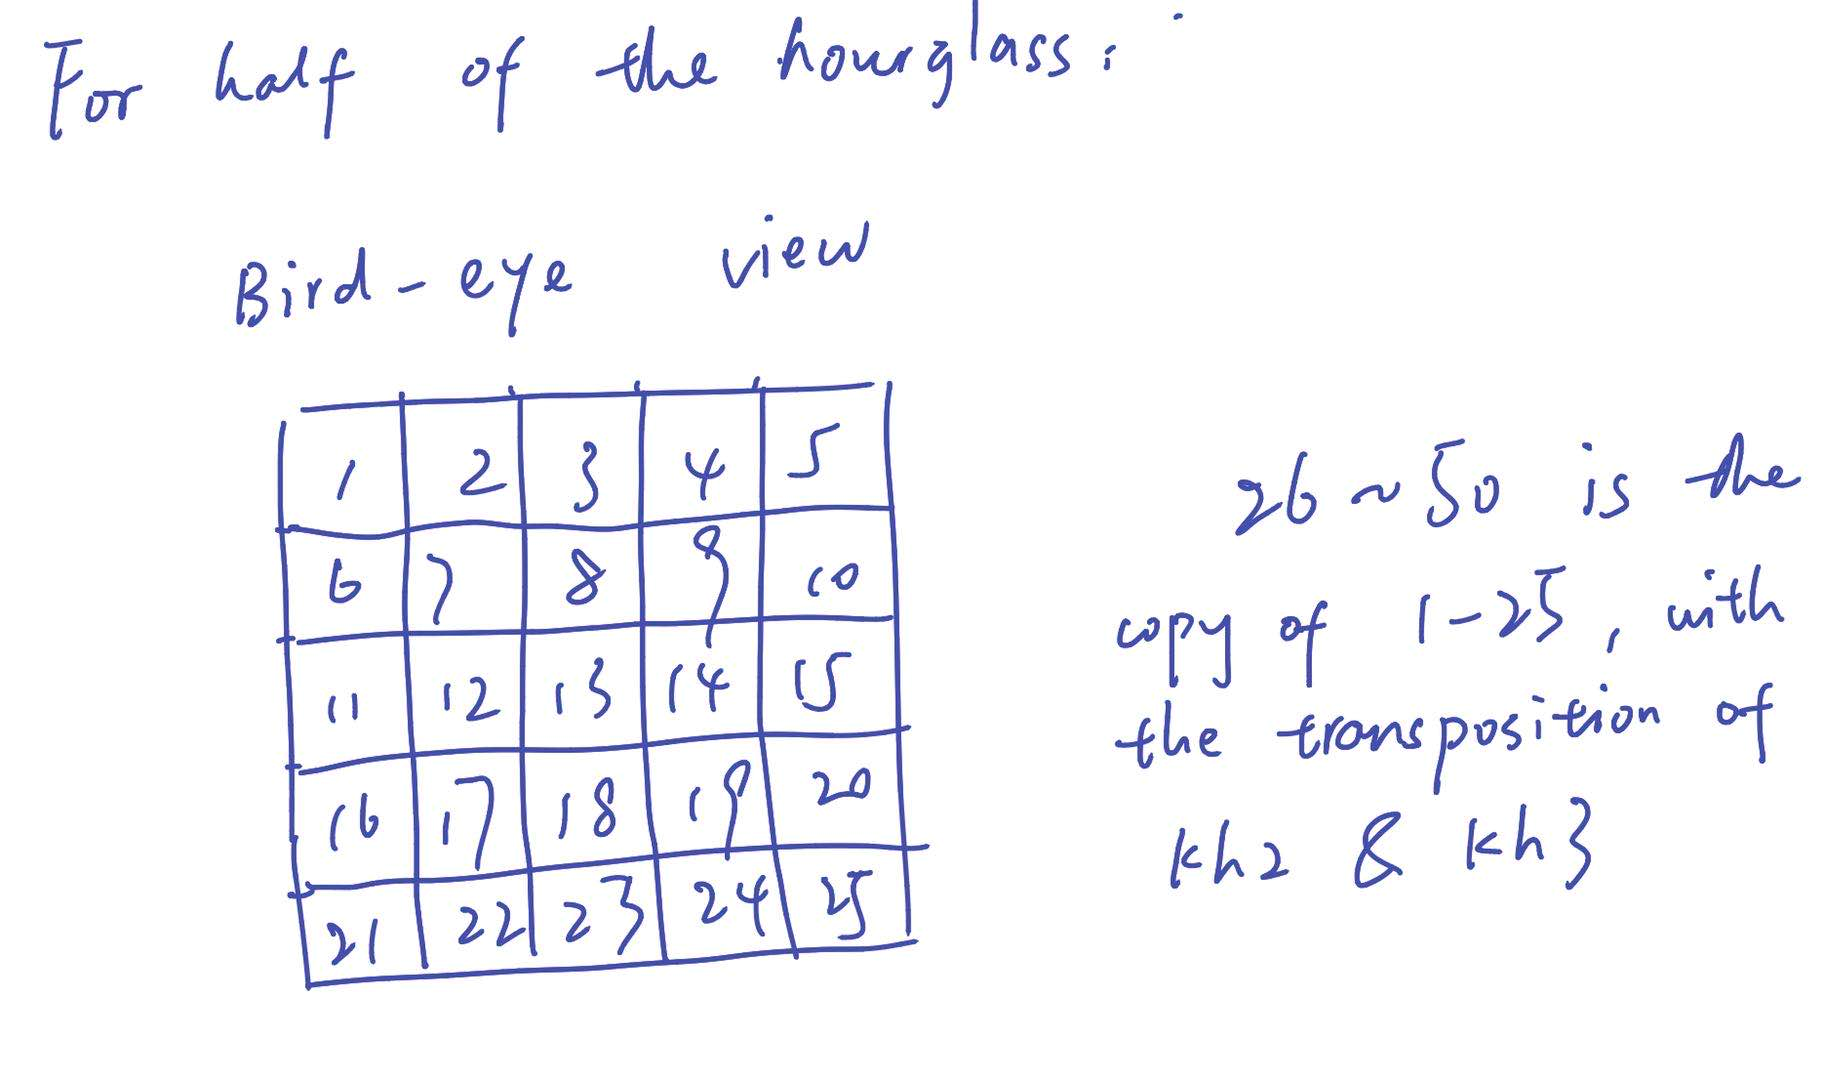 For half of the hourglass:
Bird-eye view
1 2 3 4 5
6 7 8 9 10
11 12 13 14 15
16 17 18 19 20
21 22 23 24 25
26 ~ 50 is the
copy of 1-25, with
the transposition of
kh2 & kh3